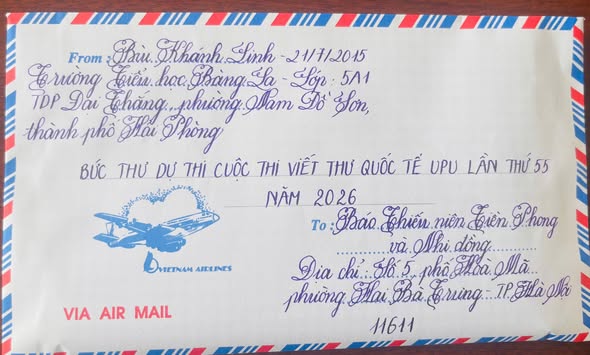 From : Bùi Khánh Linh - 21/7/2015
Trường Tiểu học Bàng La - Lớp : 5A1
TDP Đại Thắng, phường Nam Đồ Sơn,
thành phố Hải Phòng
BỨC THƯ DỰ THI CUỘC THI VIẾT THƯ QUỐC TẾ UPU LẦN THỨ 55
NĂM 2026
To : Báo Thiếu niên Tiền Phong
và Nhi đồng
VIETNAM AIRLINES
Địa chỉ : Số 5, phố Hoà Mã
VIA AIR MAIL
phường Hai Bà Trưng - TP. Hà Nội
11611